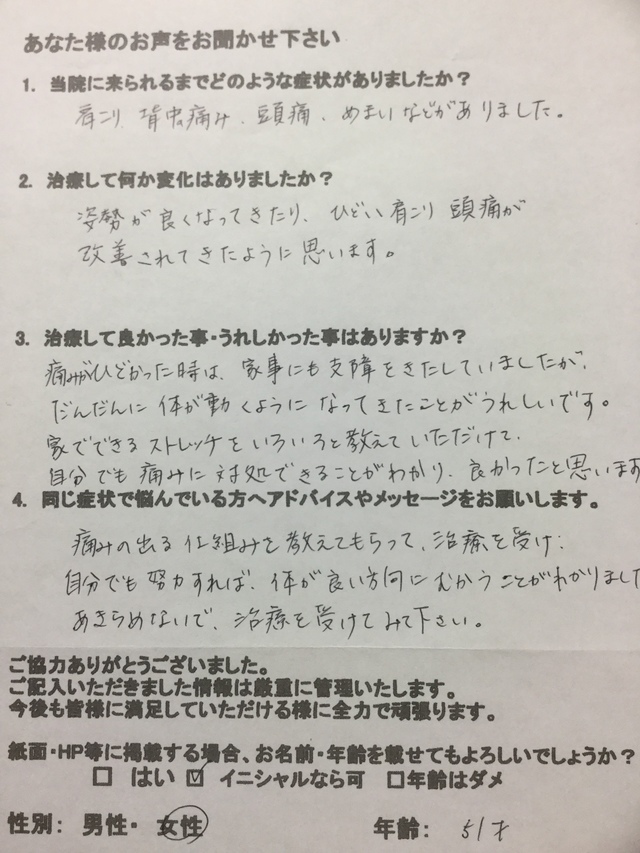 あなた様のお声をお聞かせ下さい
1. 当院に来られるまでどのような症状がありましたか？
肩こり、背中痛み、頭痛、めまいなどがありました。
2. 治療して何か変化はありましたか？
姿勢が良くなってきたり、ひどい肩こり 頭痛が
改善されてきたように思います。
3. 治療して良かった事・うれしかった事はありますか？
痛みがひどかった時は、家事にも支障をきたしていましたが、
だんだんに体が動くようになってきたことがうれしいです。
家でできるストレッチをいろいろと教えていただけて、
自分でも痛みに対処できることがわかり、良かったと思います
4. 同じ症状で悩んでいる方へアドバイスやメッセージをお願いします。
痛みの出る仕組みを教えてもらって、治療を受け、
自分でも努力すれば、体が良い方向にむかうことがわかりました
あきらめないで、治療を受けてみて下さい。
ご協力ありがとうございました。
ご記入いただきました情報は厳重に管理いたします。
今後も皆様に満足していただける様に全力で頑張ります。
紙面・HP等に掲載する場合、お名前・年齢を載せてもよろしいでしょうか？
□ はい ☑ イニシャルなら可 □年齢はダメ
性別： 男性・ 女性 年齢： 51才